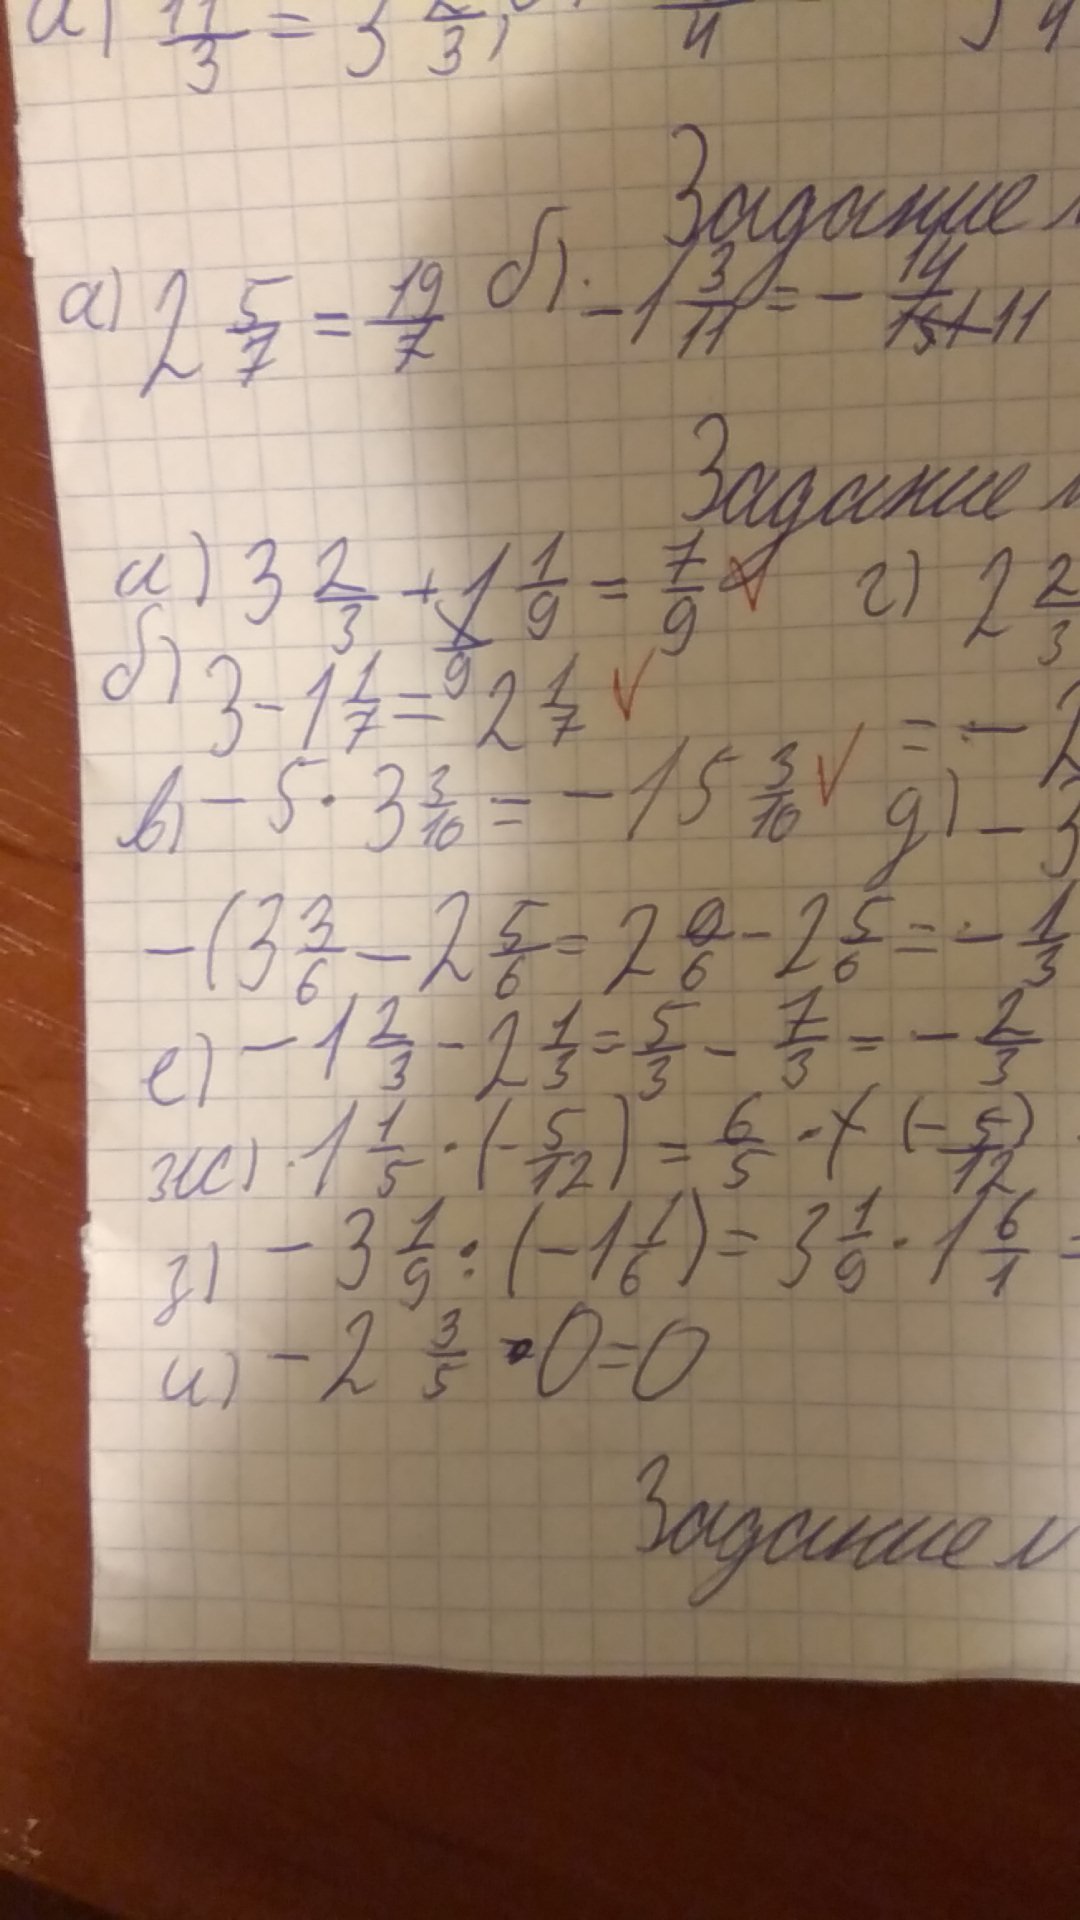 а) 11/3 = 3 2/3;
Задание
а) 2 5/7 = 19/7 б) -1 3/11 = - 14/11
Задание
а) 3 2/3 + 1 1/9 = 7/9 г) 2 2/3
б) 3 - 1 1/7 = 2 1/7
= - 2
в) - 5 · 3 3/10 = - 15 3/10 д) - 3
- (3 3/6 - 2 5/6 = 2 9/6 - 2 5/6 = - 1/3
е) - 1 2/3 - 2 1/3 = 5/3 - 7/3 = - 2/3
ж) 1 1/5 · (- 5/12) = 6/5 · (- 5/12)
з) - 3 1/9 : (- 1 1/6) = 3 1/9 · 1 6/1 =
и) - 2 3/5 · 0 = 0
Задание